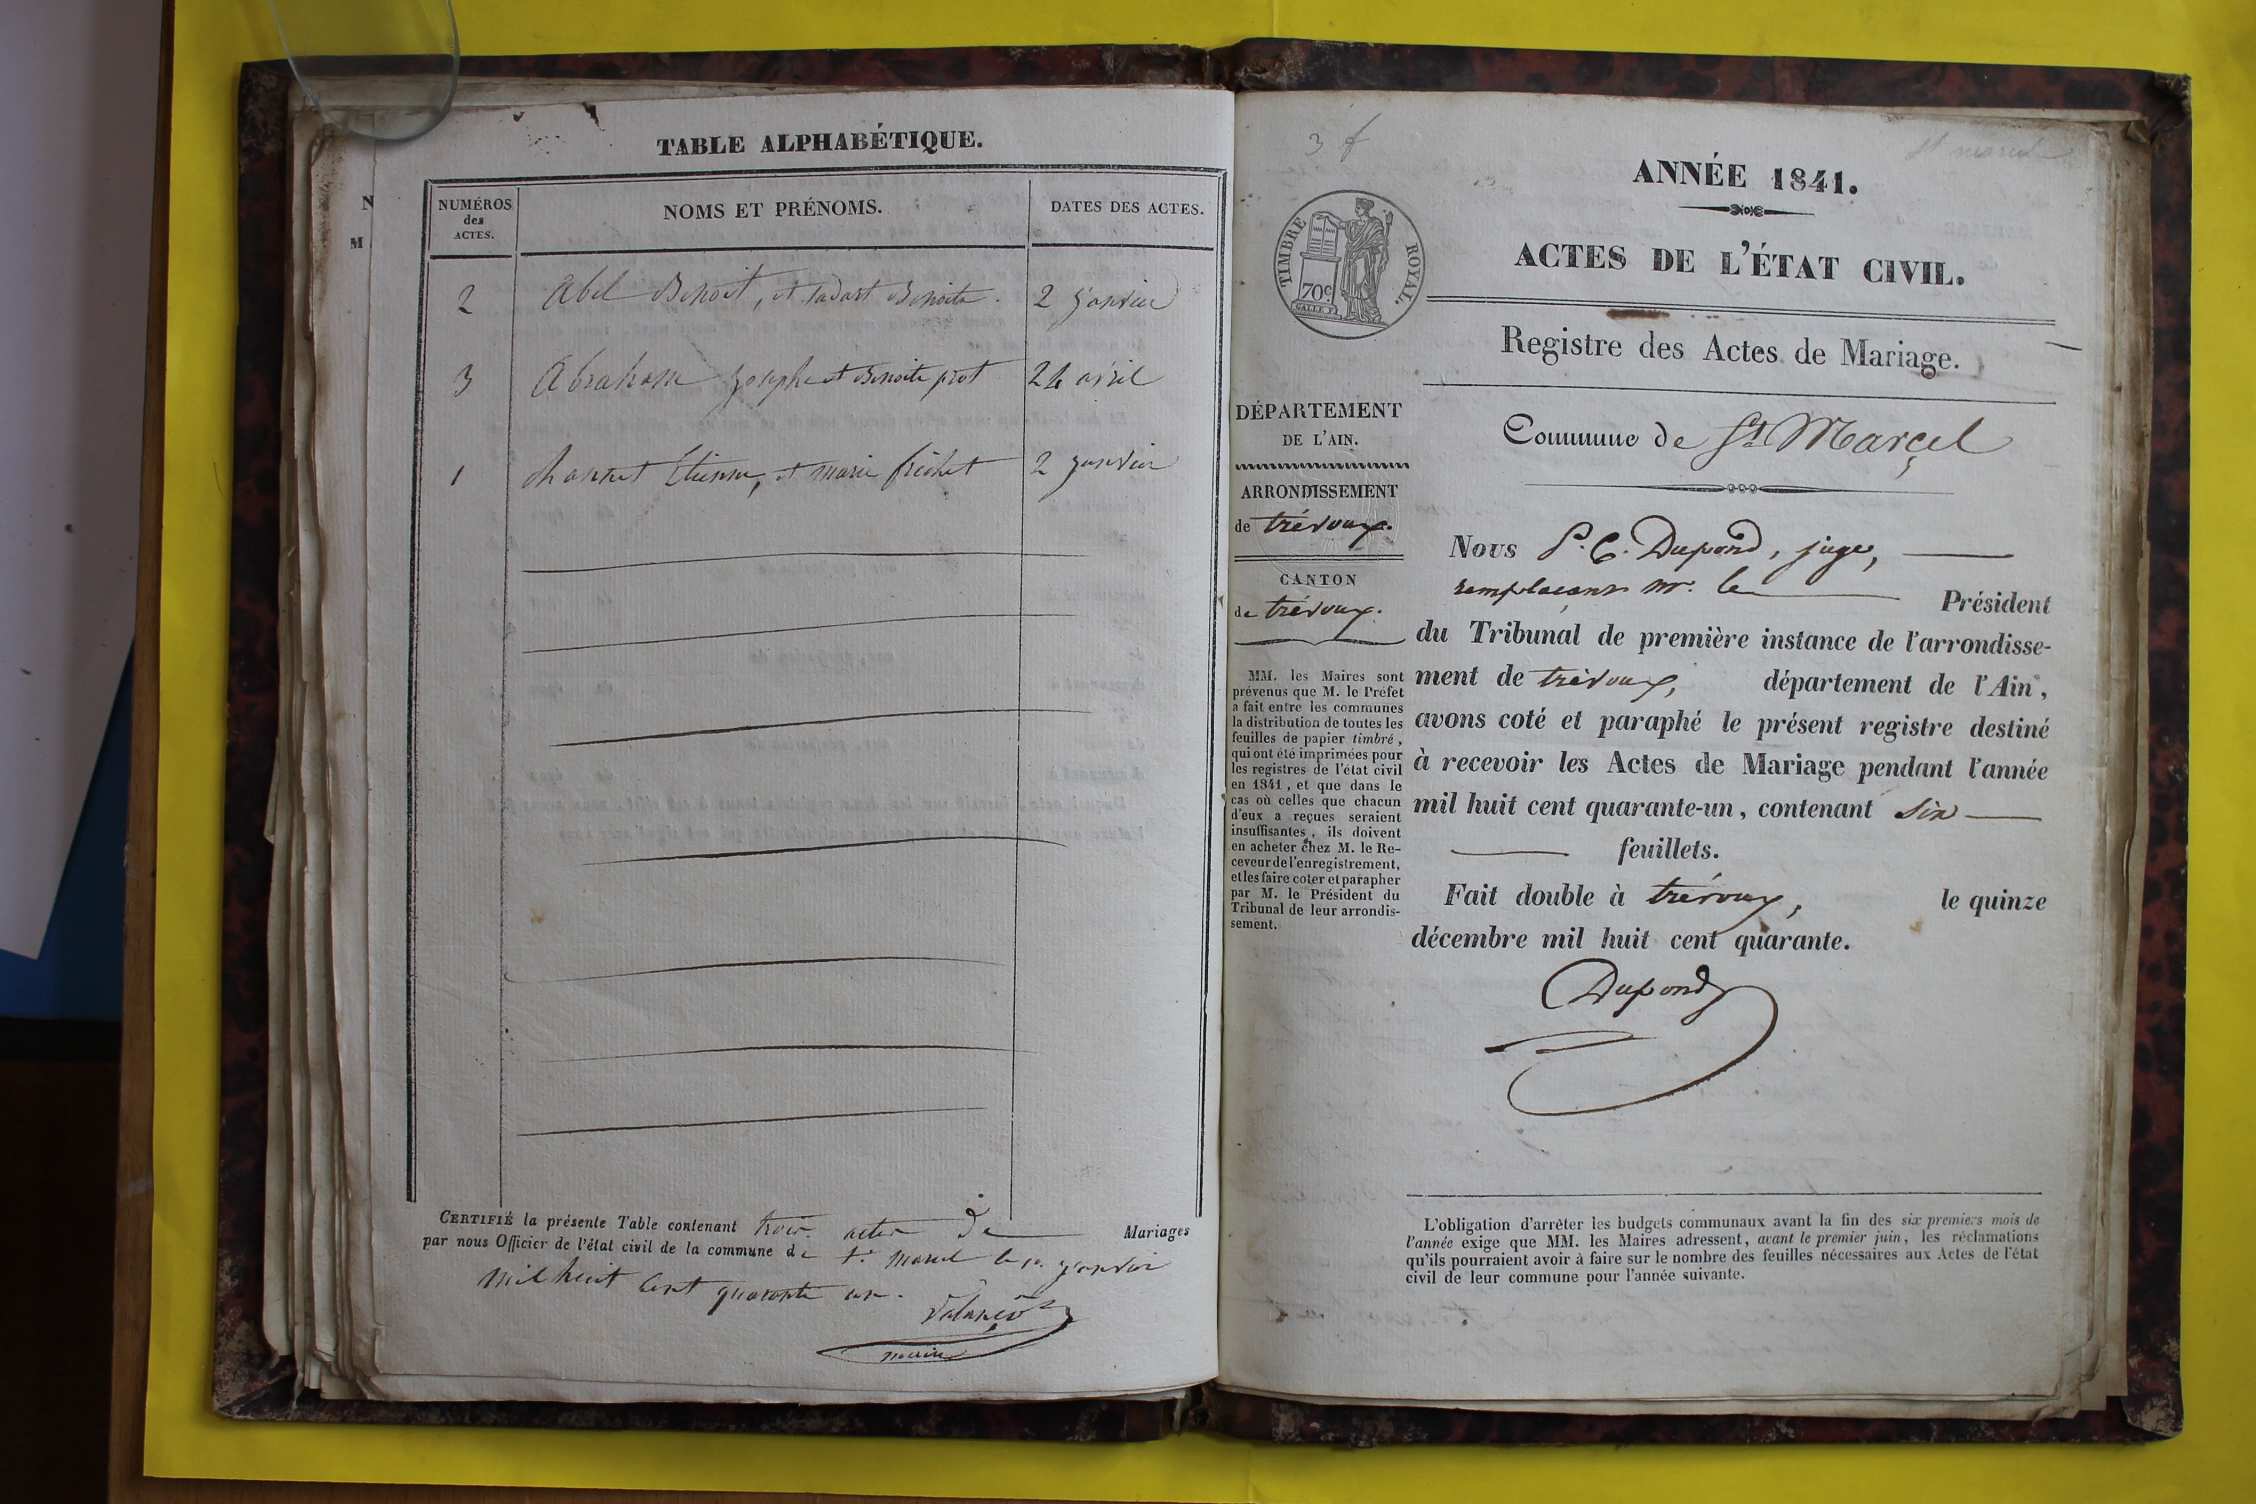 TABLE ALPHABÉTIQUE.
NUMÉROS
des
ACTES.
NOMS ET PRÉNOMS.
DATES DES ACTES.
2 Abel Benoit, et Benoite. 2 janvier
3 Abraham Josephe et Benoite prost 24 avril
1 Etienne, et marie 2 janvier
CERTIFIÉ la présente Table contenant trois actes de Mariages
par nous Officier de l'état civil de la commune de St. Marcel le 10 janvier
mil huit cent quarante un.
maire
N
M
3 f
St marcel
ANNÉE 1841.
TIMBRE ROYAL.
70c.
ACTES DE L'ÉTAT CIVIL.
Registre des Actes de Mariage.
DÉPARTEMENT
DE L'AIN.
ARRONDISSEMENT
de trévoux.
CANTON
de trévoux.
MM. les Maires sont
prévenus que M. le Préfet
a fait entre les communes
la distribution de toutes les
feuilles de papier timbré,
qui ont été imprimées pour
les registres de l'état civil
en 1841, et que dans le
cas où celles que chacun
d'eux a reçues seraient
insuffisantes, ils doivent
en acheter chez M. le Re-
ceveur de l'enregistrement,
et les faire coter et parapher
par M. le Président du
Tribunal de leur arrondis-
sement.
Commune de St Marcel
Nous P. C. Dupond, juge,
remplaçant mr. le Président
du Tribunal de première instance de l'arrondisse-
ment de trévoux, département de l'Ain,
avons coté et paraphé le présent registre destiné
à recevoir les Actes de Mariage pendant l'année
mil huit cent quarante-un, contenant six
feuillets.
Fait double à trévoux, le quinze
décembre mil huit cent quarante.
Dupond
L'obligation d'arrêter les budgets communaux avant la fin des six premiers mois de
l'année exige que MM. les Maires adressent, avant le premier juin, les réclamations
qu'ils pourraient avoir à faire sur le nombre des feuilles nécessaires aux Actes de l'état
civil de leur commune pour l'année suivante.